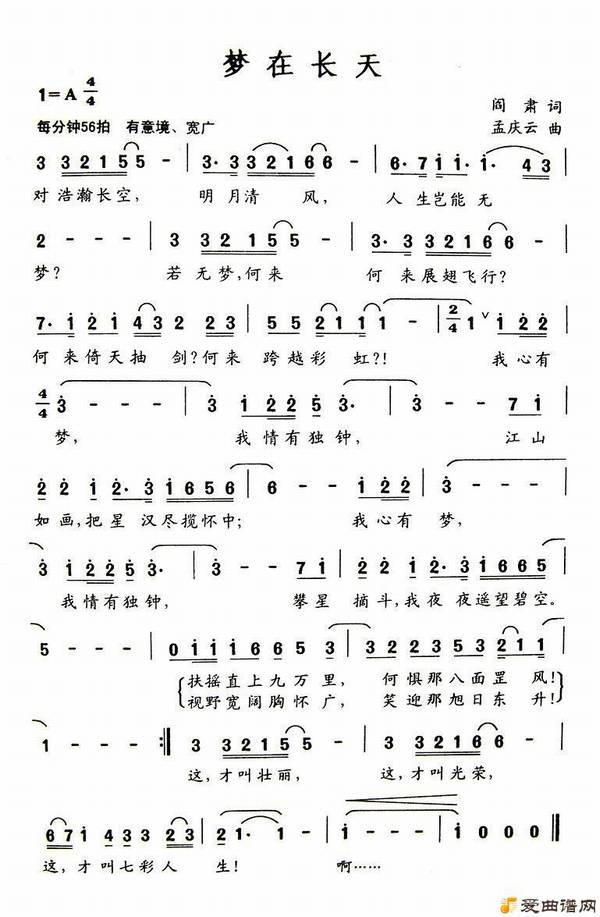 梦在长天
1=A 4/4
阎肃 词
每分钟56拍 有意境、宽广
孟庆云 曲
3 3 2 1 5 5 - | 3· 3 3 2 1 6 6 - | 6· 7 i i· i· 4 3 |
对浩瀚长空， 明月清 风， 人生岂能无
2 - - - | 3 3 2 1 5 5 - | 3· 3 3 2 1 6 6 - |
梦？ 若无梦，何来 何来展翅飞行？
何来倚天抽 剑？何来 跨越彩 虹？！ 我心有
梦， 我情有独钟， 江山
如画，把星 汉尽揽怀中； 我心有 梦，
我情有独钟， 攀星 摘斗，我夜 夜遥望碧空。
扶摇直上九万里， 何惧那八面罡 风！
视野宽阔胸怀广， 笑迎那旭日东 升！
1 - - :‖ 3 3 2 1 5 5 - | 3 3 2 1 6 6 - |
这，才叫壮丽， 这，才叫光荣，
这，才叫七彩人 生！ 啊……
爱曲谱网